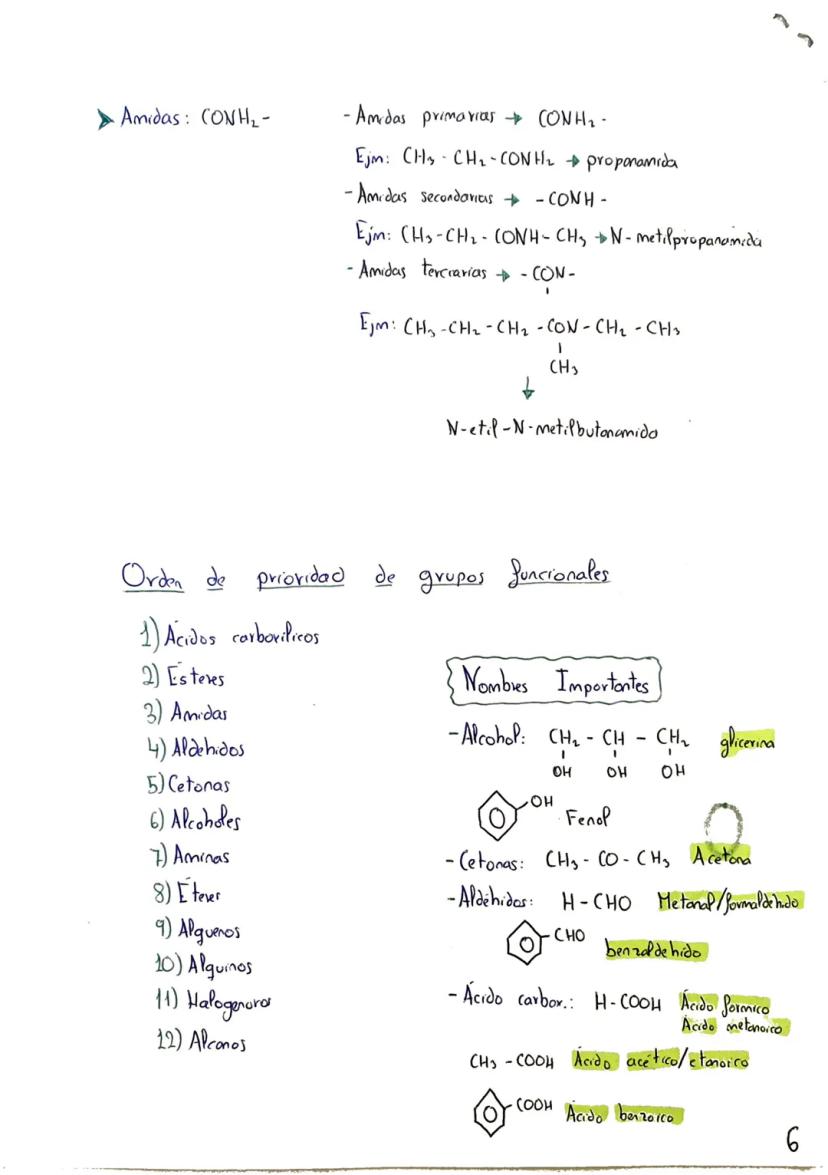 ➤ Amidas: CONH₂-
- Amidas primarias → CONH₂-
Ejm: CH₃-CH₂-CONH₂ → propanamida
- Amidas secondarias → -CONH-
Ejm: CH₃-CH₂-CONH-CH₃ → N-metilpropanamida
- Amidas terciarias → -CON-
Ejm: CH₃-CH₂-CH₂-CON-CH₂-CH₃
CH₃
↓
N-etil-N-metilbutanamida
Orden de prioridad de grupos funcionales
1) Ácidos carboxílicos
2) Ésteres
3) Amidas
4) Aldehidos
5) Cetonas
6) Alcoholes
7) Aminas
8) Éteres
9) Alquenos
10) Alquinos
11) Halogenuros
12) Alcanos
Nombres Importantes
-Alcohol: CH₂ - CH - CH₂ glicerina
OH OH OH
OH Fenol
- Cetonas: CH₃-CO-CH₃ Acetona
-Aldéhidos: H-CHO Metanal/formaldehido
-CHO benzaldehido
- Ácido carbox.: H-COOH Ácido formico
Ácido metanoico
CH₃-COOH Ácido acético/etanoico
-COOH Ácido benzoico
6